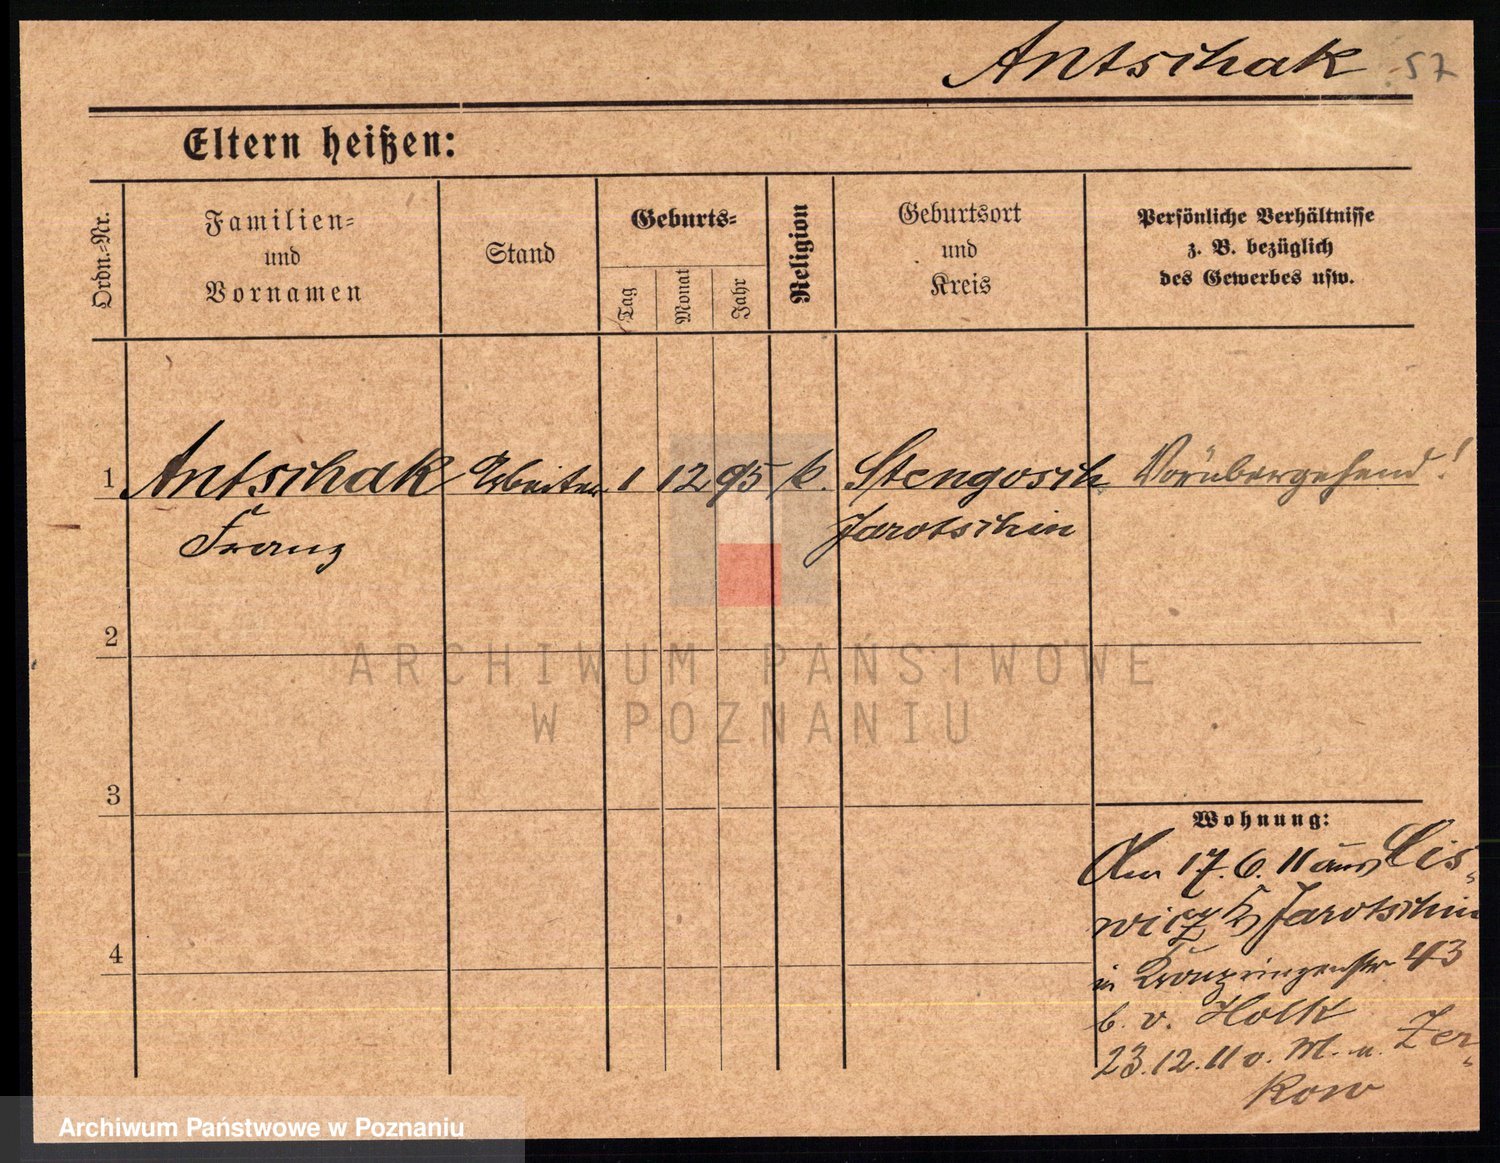 Antschak 57
Eltern heißen:
Ordn.-Nr.
Familien-
und
Vornamen
Stand
Geburts-
Tag
Monat
Jahr
Religion
Geburtsort
und
Kreis
Persönliche Verhältnisse
z. B. bezüglich
des Gewerbes usw.
1 Antschak Arbeiter 1 12 95 k. Stengosch Vorübergehend!
Franz Jarotschin
2
ARCHIWUM PAŃSTWOWE
W POZNANIU
3
Wohnung:
Am 17.6.11 aus Cis-
wicz Jarotschin
in Kronprinzenstr 43
b. v. Holk
23.12.11 v. M. n. Zer-
kow
4
Archiwum Państwowe w Poznaniu